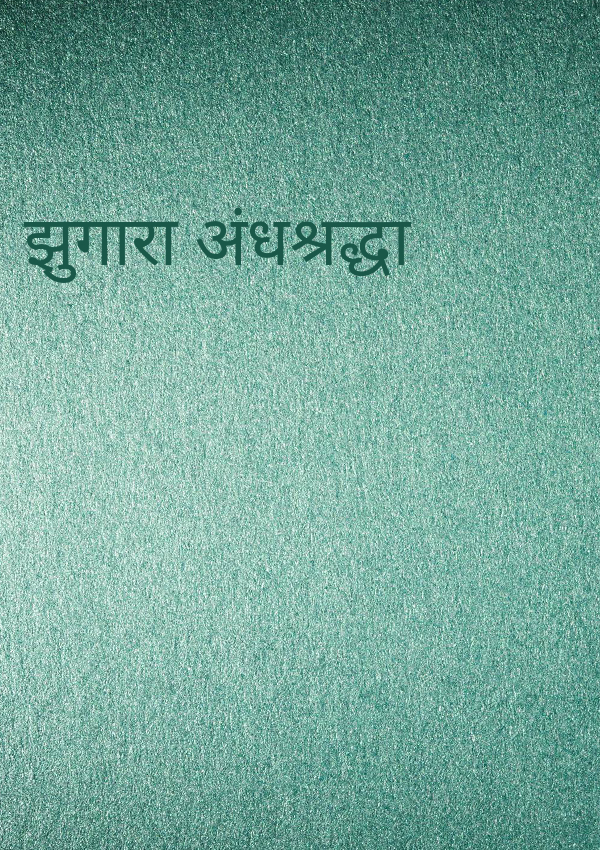 झुगारा अंधश्रद्धा